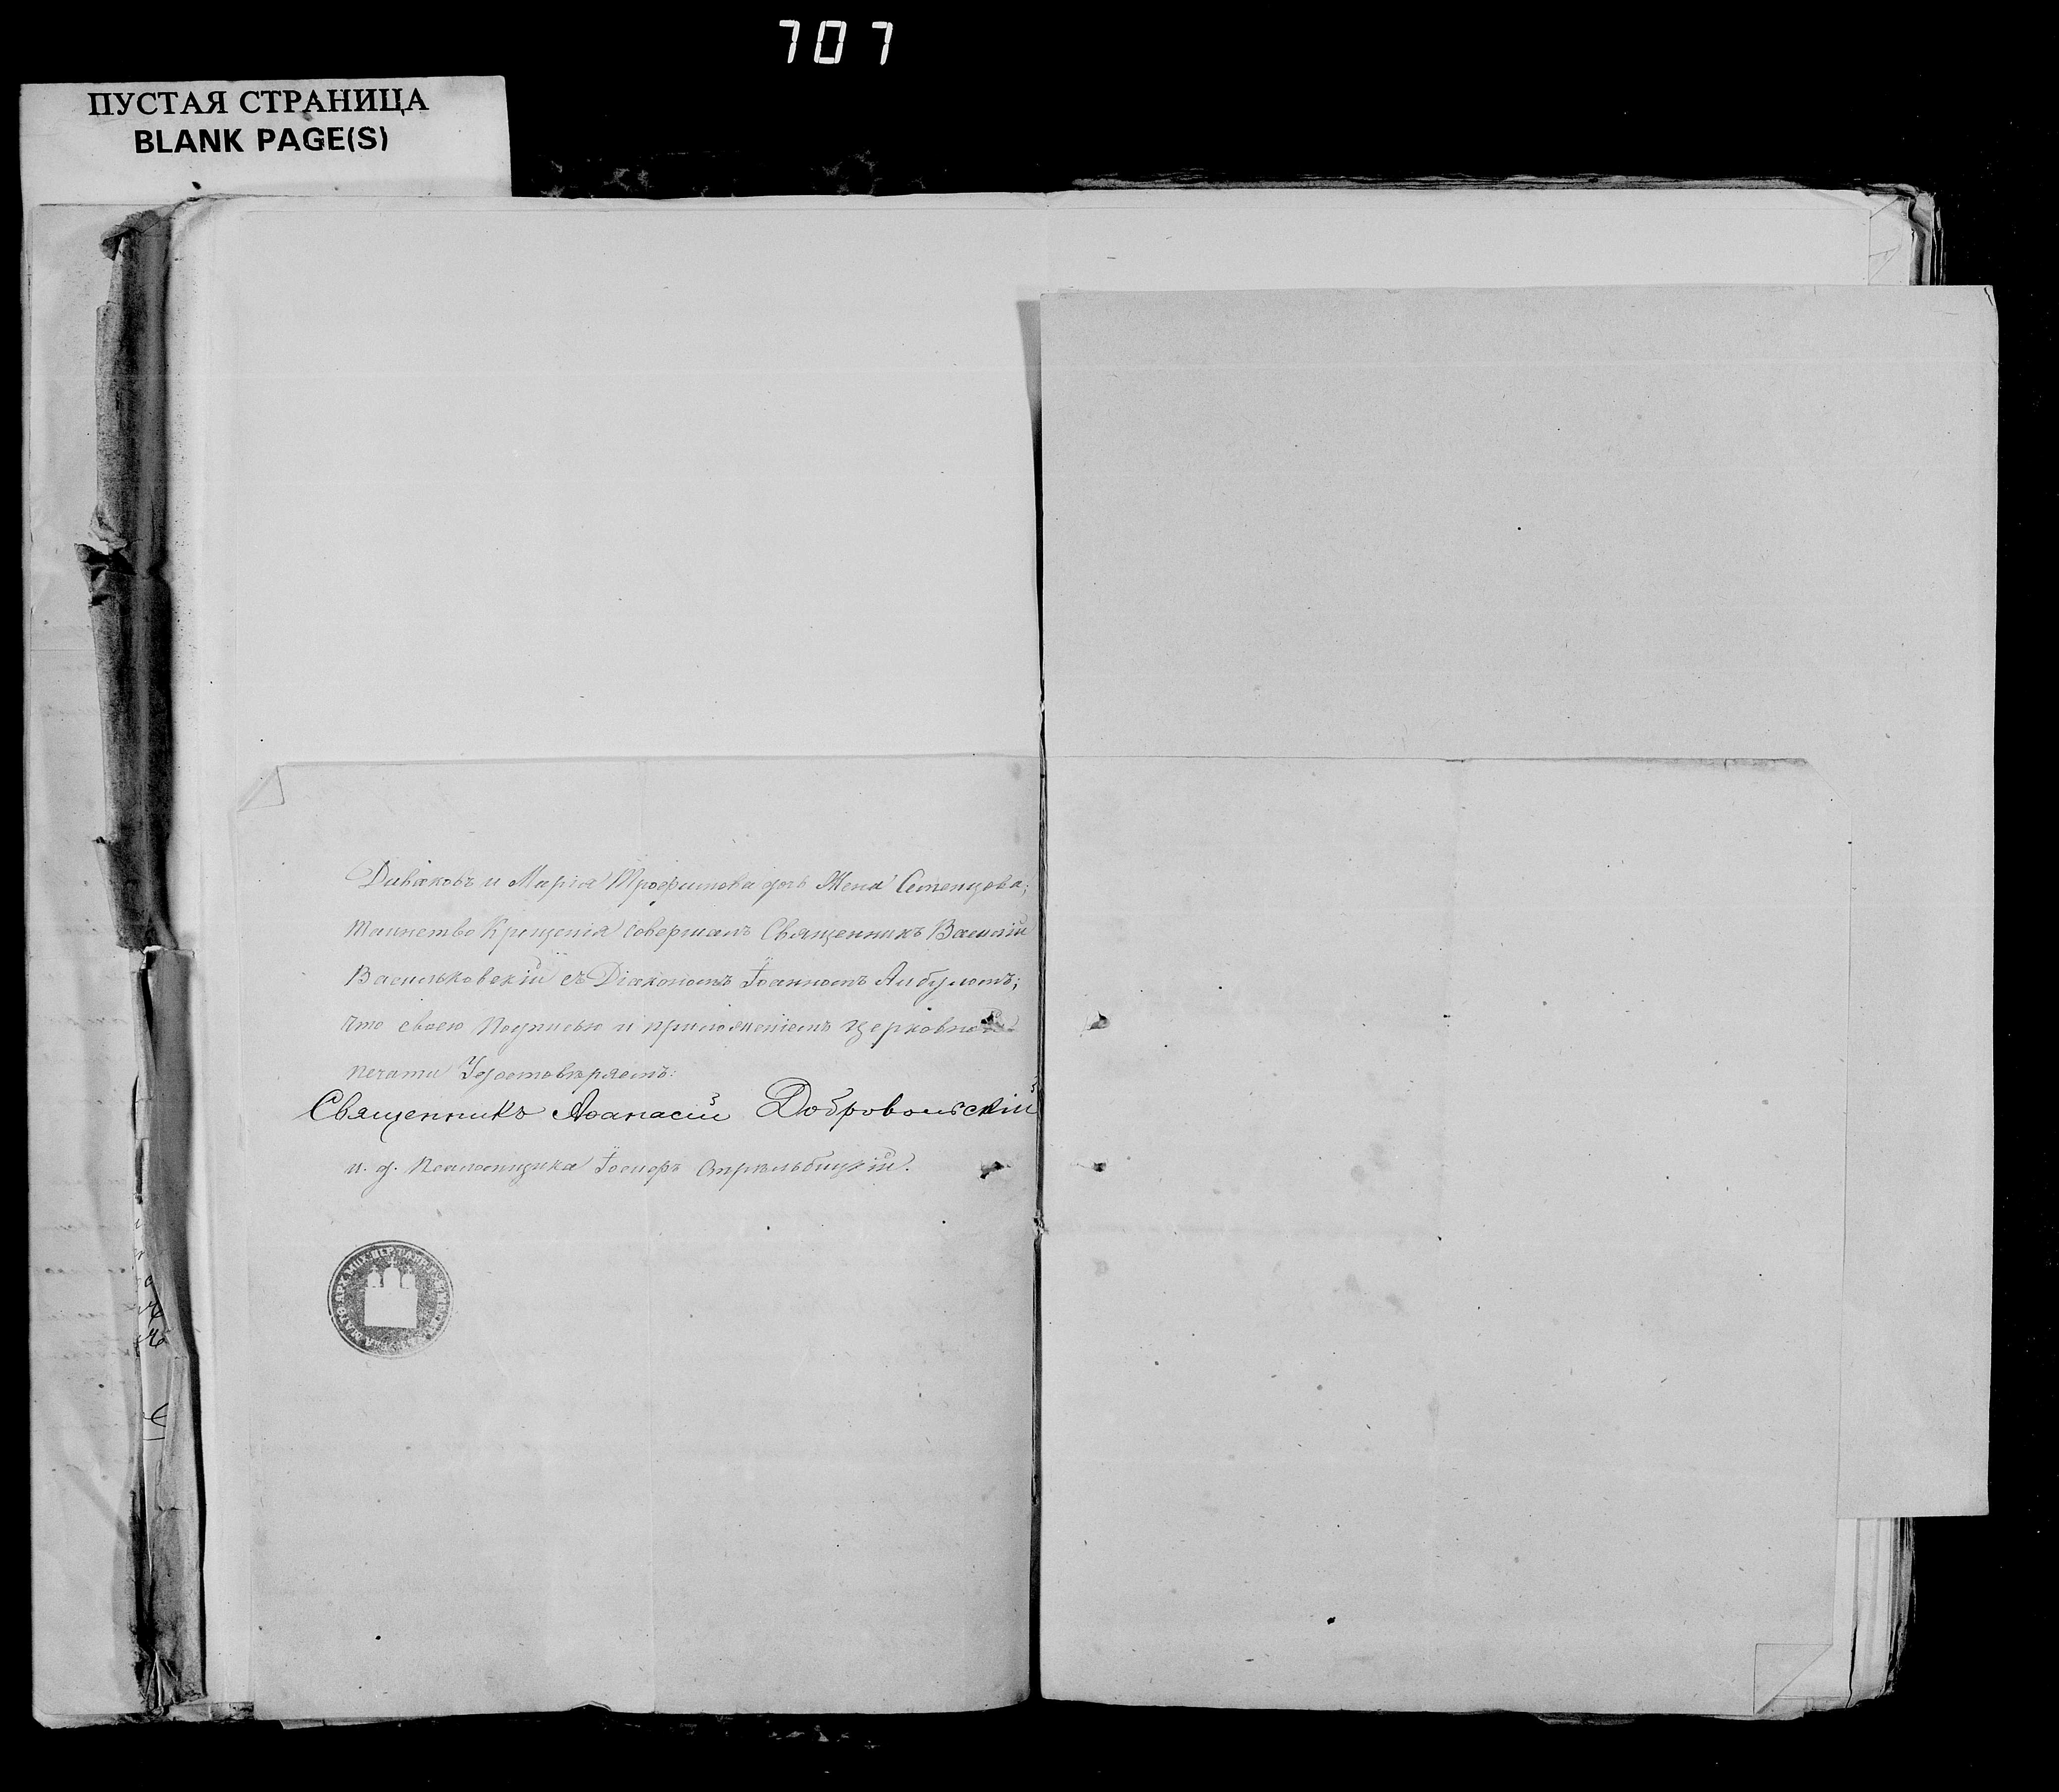 707
ПУСТАЯ СТРАНИЦА
BLANK PAGE(S)
и Марія Трофимова Жена
таинство Крещенія совершалъ Священникъ Василій
Васильковскій съ Діакономъ Іоанномъ
что своею подписью и приложеніемъ церковной
печати Удостовѣряемъ:
Священникъ Аѳанасій Добровольскій
и. д. Псаломщика Іосифъ Стрѣльбицкій.